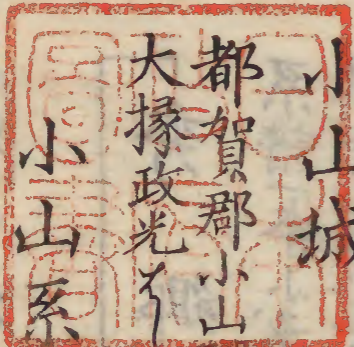 小山城
都賀郡小山
大掾政光は
小山系